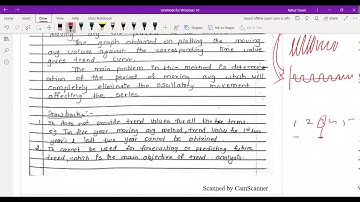 OneNote for Windows 10
Rahul Tiwari
moving avg
The graph obtained on plotting the moving
avg values against the corresponding time value
gives trend curve.
The main problem in this method is determin
ation of the period of moving avg which will
completely eliminate the oscillatory movement
affecting the series
Drawbacks:-
1. It does not provide trend values for all the terms.
eg In five year moving avg method, trend value for 1st two
years & last two year cannot be obtained
2. It cannot be used for forecasting or predicting future
trend, which is the main objective of trend analysis.
Scanned by CamScanner
1 2